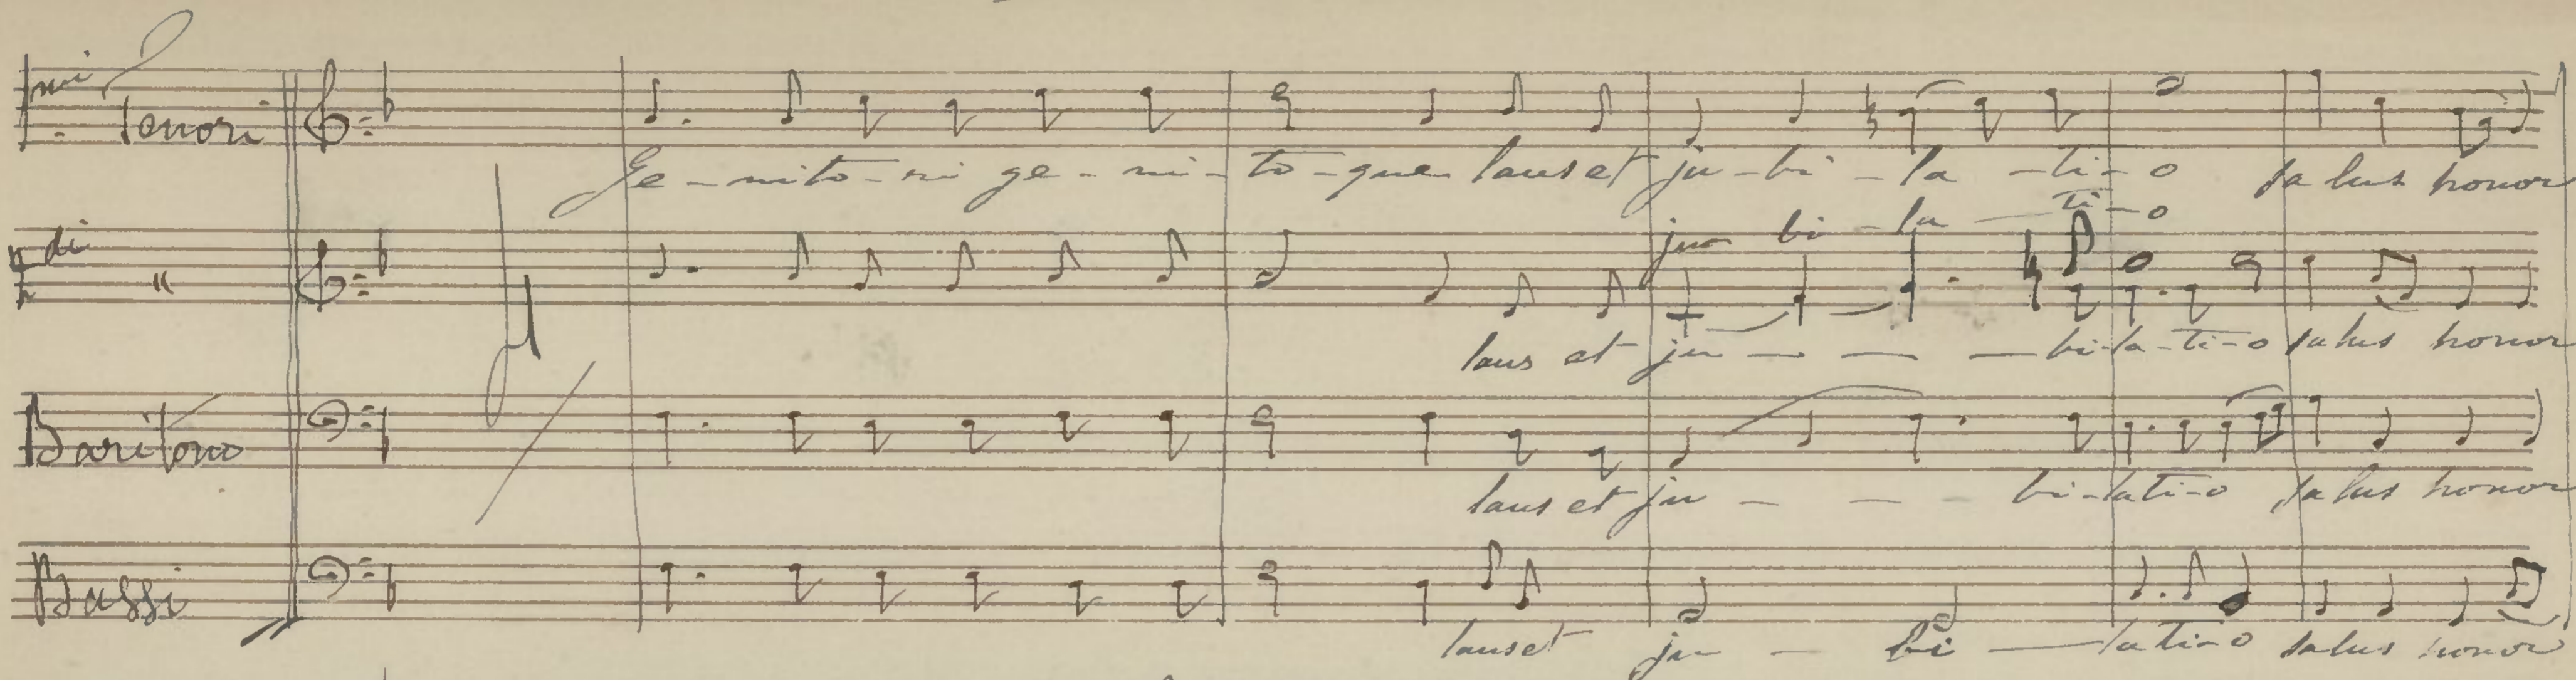 mi Tenori
Ge - nito - ri ge - ni - to - que laus et ju - bi - la - ti - o salus honor
ju bi - la - ti - o
di "
laus et ju - - - - bi - la - ti - o salus honor
Baritono
laus et ju - - - bi - lati - o salus honor
Bassi
laus et ju - bi - lati - o salus honor